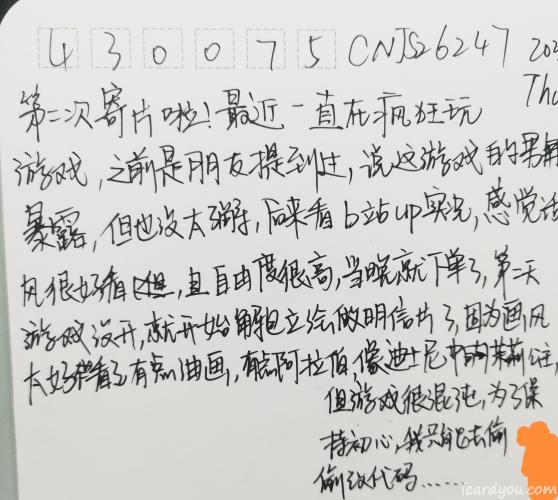 430075 CNJS26247 202
Thu
第二次寄片啦!最近一直在疯狂玩
游戏,之前是朋友提到过,说这游戏的男角
暴露,但也没太理解,后来看b站up实况,感觉画
风很好看,且自由度很高,当晚就下单了,第二天
游戏没开,就开始解包立绘做明信片了,因为画风
太好看了有点油画,有点阿拉伯,像迪士尼中的茉莉公主,
但游戏很混沌,为了保
持初心,我只能去偷
偷改代码……
icardyou.com